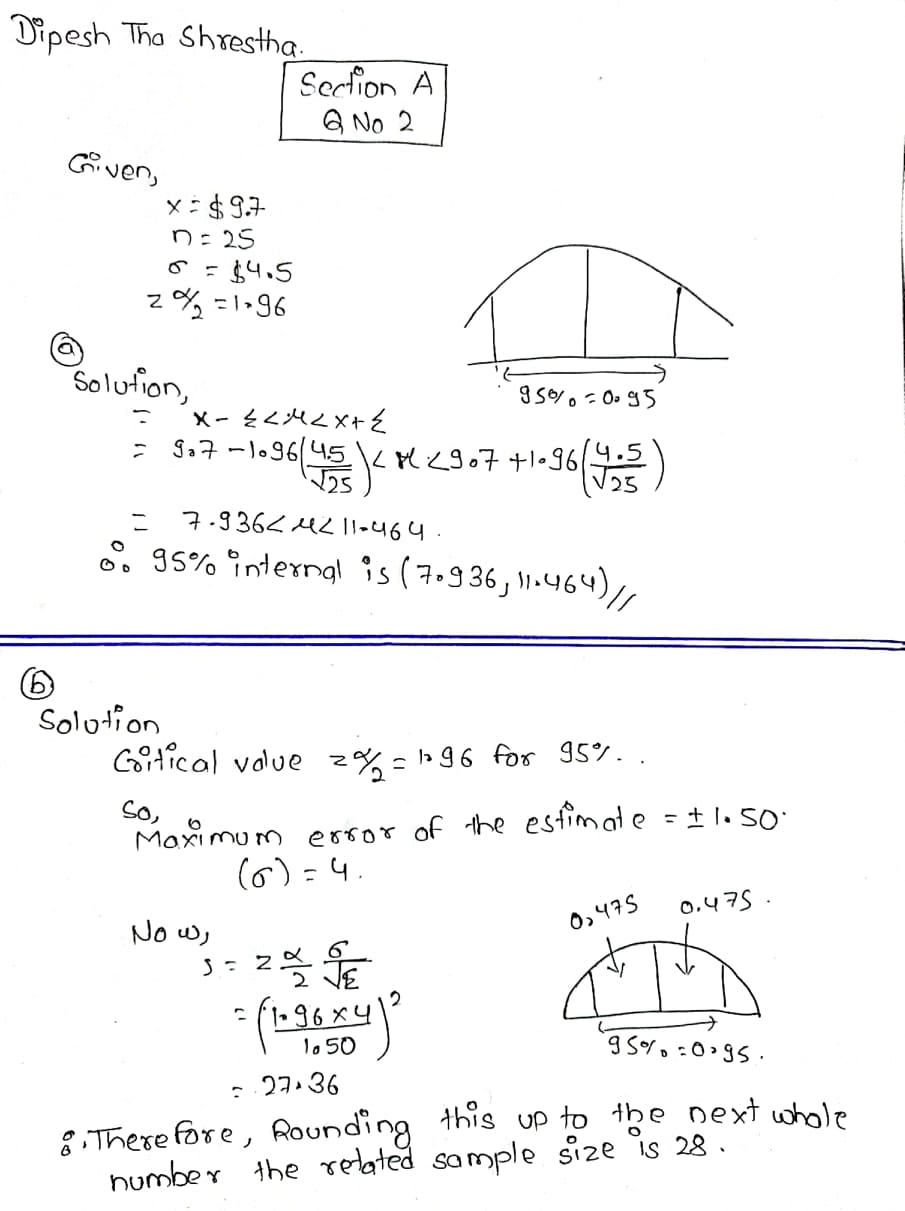 Dipesh Tha Shrestha.
Section A
Q No 2
Given,
x = $9.7
n = 25
σ = $4.5
z α/2 = 1.96
(a)
Solution,
95% = 0.95
= x - ξ < μ < x + ξ
= 9.7 - 1.96 (4.5/√25) < μ < 9.7 + 1.96 (4.5/√25)
= 7.936 < μ < 11.464.
∴ 95% internal is (7.936, 11.464)//
(b)
Solution
Critical value z α/2 = 1.96 for 95%..
So,
Maximum error of the estimate = ± 1.50.
(σ) = 4.
0.475 0.475.
Now,
= z α/2 σ/√E
= (1.96 x 4 / 1.50)²
95% = 0.95.
= 27.36
∴ Therefore, Rounding this up to the next whole
number the related sample size is 28.